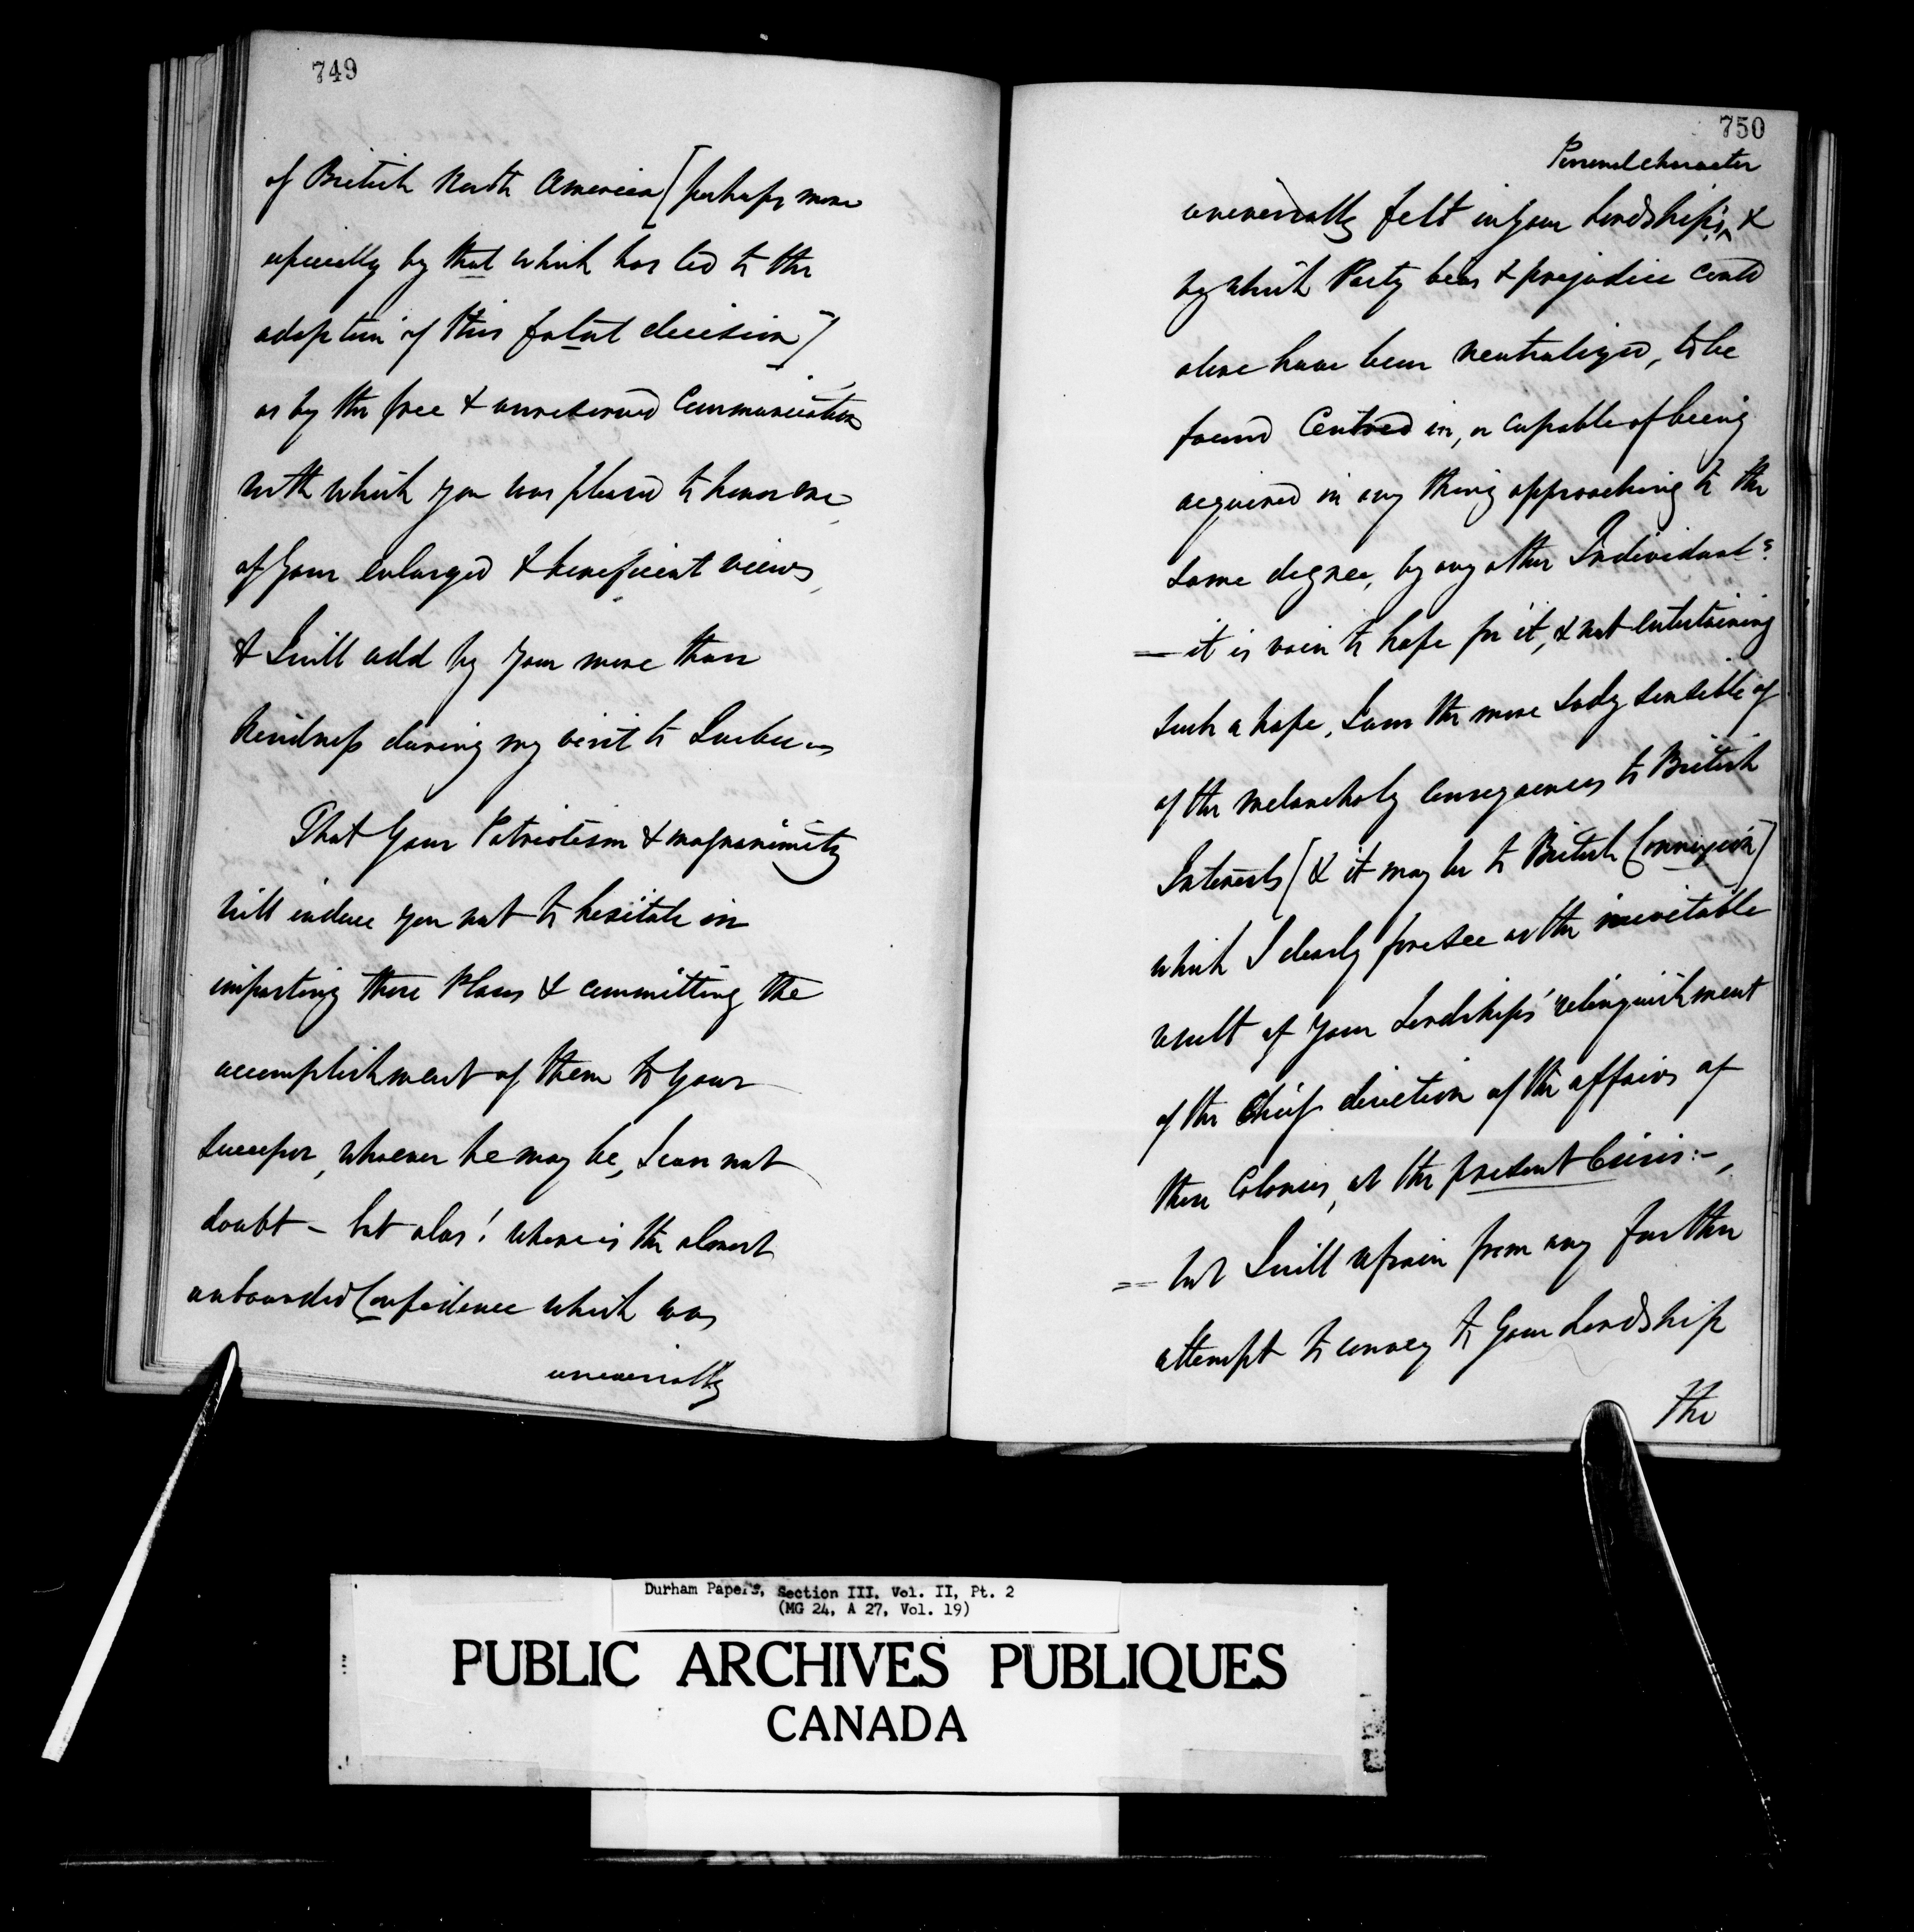 749
of British North America [perhaps more
especially by that which has led to the
adoption of this fatal decision]
as by the free & unreserved Communication
with which you was pleased to honor me
of Your enlarged & beneficient views,
& I will add by Your more than
kindness during my visit to Quebec
That Your Patriotism & magnanimity
will induce you not to hesitate in
imparting these Plans & committing the
accomplishment of them to Your
Successor, whoever he may be, I can not
doubt – but alas! where is the almost
unbounded Confidence which was
universally
750
Personal character
universally felt in Your Lordship's &
by which Party bias & prejudice could
alone have been neutralized, to be
found Centred in, or capable of being
acquired in any thing approaching to the
same degree, by any other Individual?
— it is vain to hope for it, & not entertaining
such a hope, I am the more sadly sensible of
of the melancholy consequences to British
Interests [& it may be to British Connexion]
which I clearly foresee as the inevitable
result of Your Lordships' relinquishment
of the Chief direction of the affairs of
these Colonies, at the present Crisis:–,
— but I will refrain from any further
attempt to convey to Your Lordship
the
Durham Papers, Section III. Vol. II, Pt. 2
(MG 24, A 27, Vol. 19)
PUBLIC ARCHIVES PUBLIQUES
CANADA